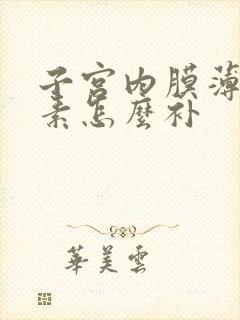 子宫内膜薄
素怎麽补
華美雲